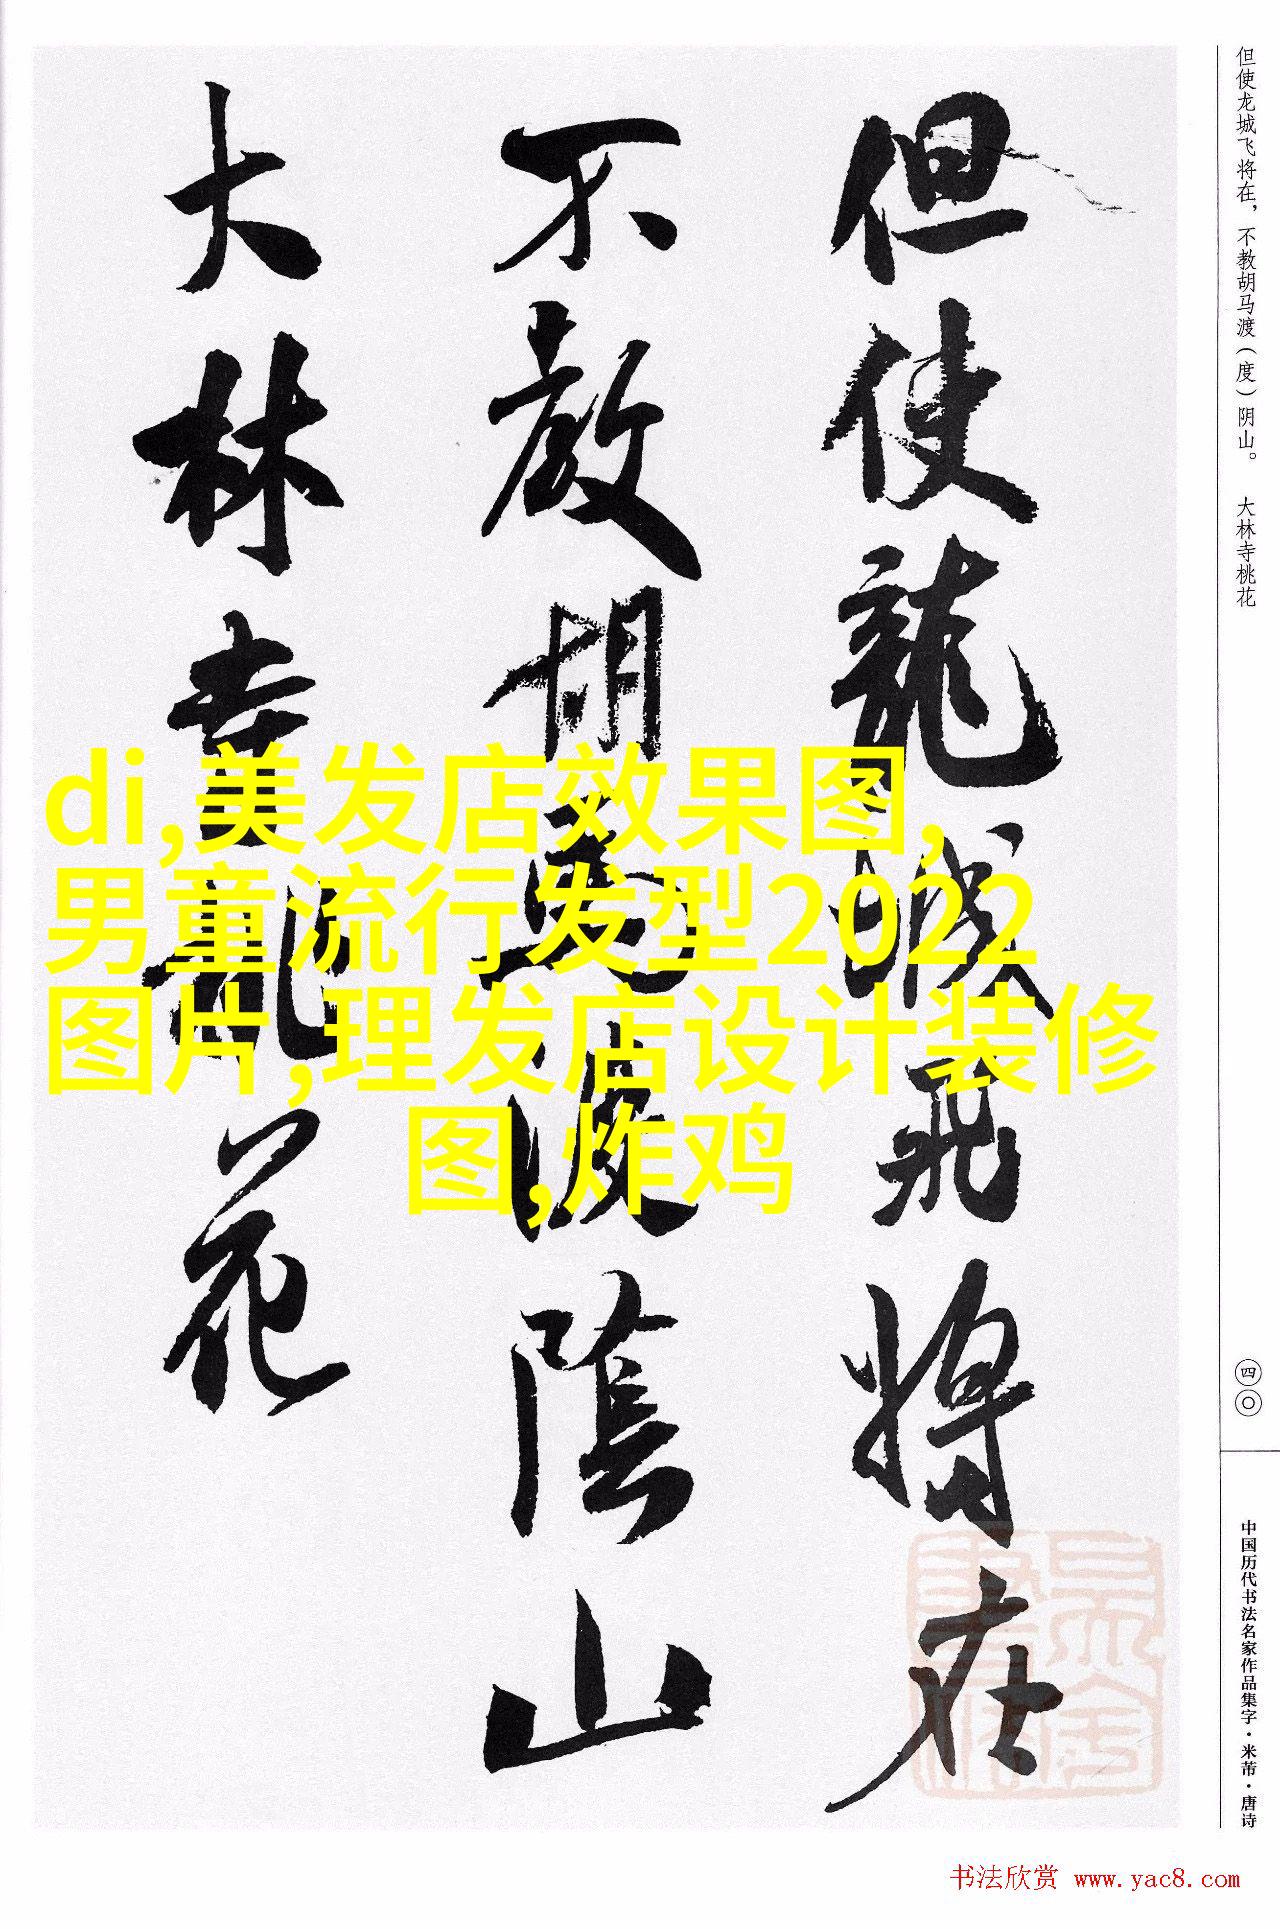 但使龙城飞将在，不教胡马渡（度）阴山。　大林寺桃花
四〇
中国历代书法名家作品集字·米芾·唐诗
但使龍城飛将在
不教胡馬渡陰山
大林寺桃花
di,美发店效果图,
男童流行发型2022
图片,理发店设计装修
图,炸鸡
书法欣赏 www.yac8.com